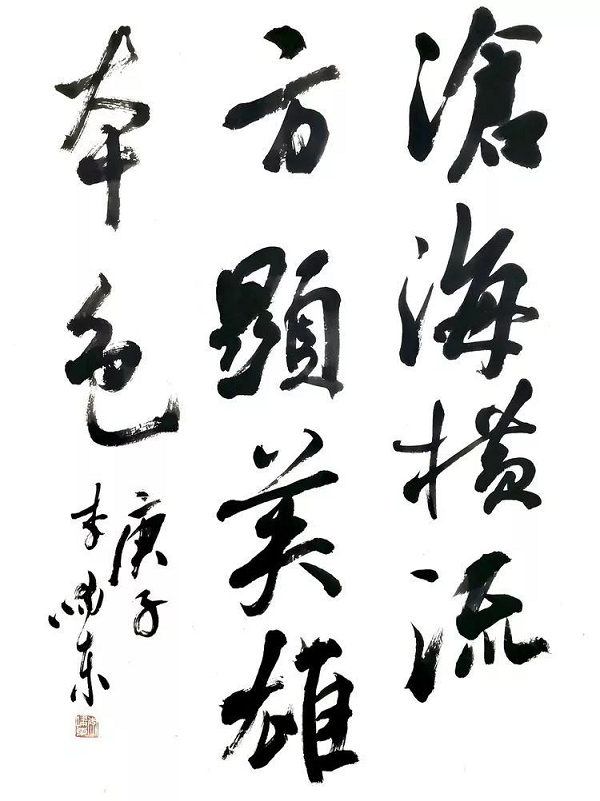 滄海横流
方顯英雄
本色
庚子
李东